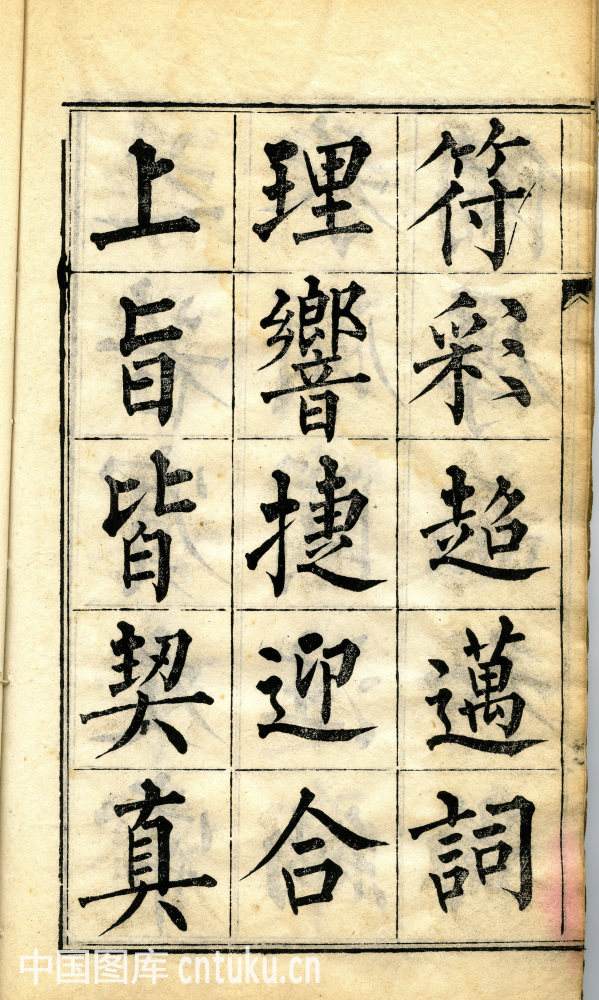 符彩超邁詞
理響捷迎合
上旨皆契真
中国图库 cntuku.cn